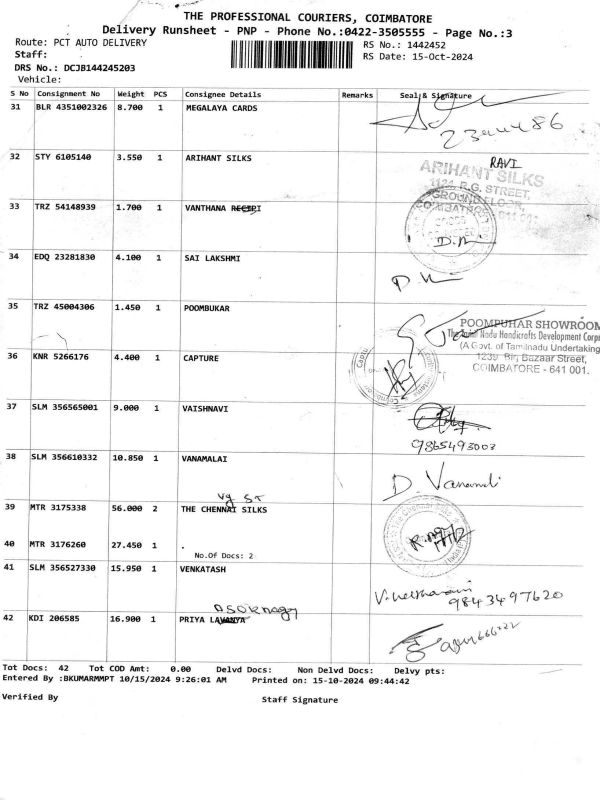 THE PROFESSIONAL COURIERS, COIMBATORE
Delivery Runsheet - PNP - Phone No.:0422-3505555 - Page No.:3
Route: PCT AUTO DELIVERY
RS No.: 1442452
Staff:
RS Date: 15-Oct-2024
DRS No.: DCJB144245203
Vehicle:
S No Consignment No Weight PCS Consignee Details Remarks Seal & Signature
31 BLR 4351002326 8.700 1 MEGALAYA CARDS
32 STY 6105140 3.550 1 ARIHANT SILKS
RAVI
ARIHANT SILKS
R.G. STREET,
GROUND FLOOR,
33 TRZ 54148939 1.700 1 VANTHANA
34 EDQ 23281830 4.100 1 SAI LAKSHMI
35 TRZ 45004306 1.450 1 POOMBUKAR
POOMPUHAR SHOWROOM
The Tamil Nadu Handicrafts Development Corp
(A Govt. of Tamilnadu Undertaking
1239 Big Bazaar Street,
COIMBATORE - 641 001.
36 KNR 5266176 4.400 1 CAPTURE
37 SLM 356565001 9.000 1 VAISHNAVI
9865493003
38 SLM 356610332 10.850 1 VANAMALAI
39 MTR 3175338 56.000 2 THE CHENNAI SILKS
40 MTR 3176260 27.450 1 .
No.Of Docs: 2
41 SLM 356527330 15.950 1 VENKATASH
9843497620
42 KDI 206585 16.900 1 PRIYA
Tot Docs: 42 Tot COD Amt: 0.00 Delvd Docs: Non Delvd Docs: Delvy pts:
Entered By :BKUMARMMPT 10/15/2024 9:26:01 AM Printed on: 15-10-2024 09:44:42
Verified By Staff Signature